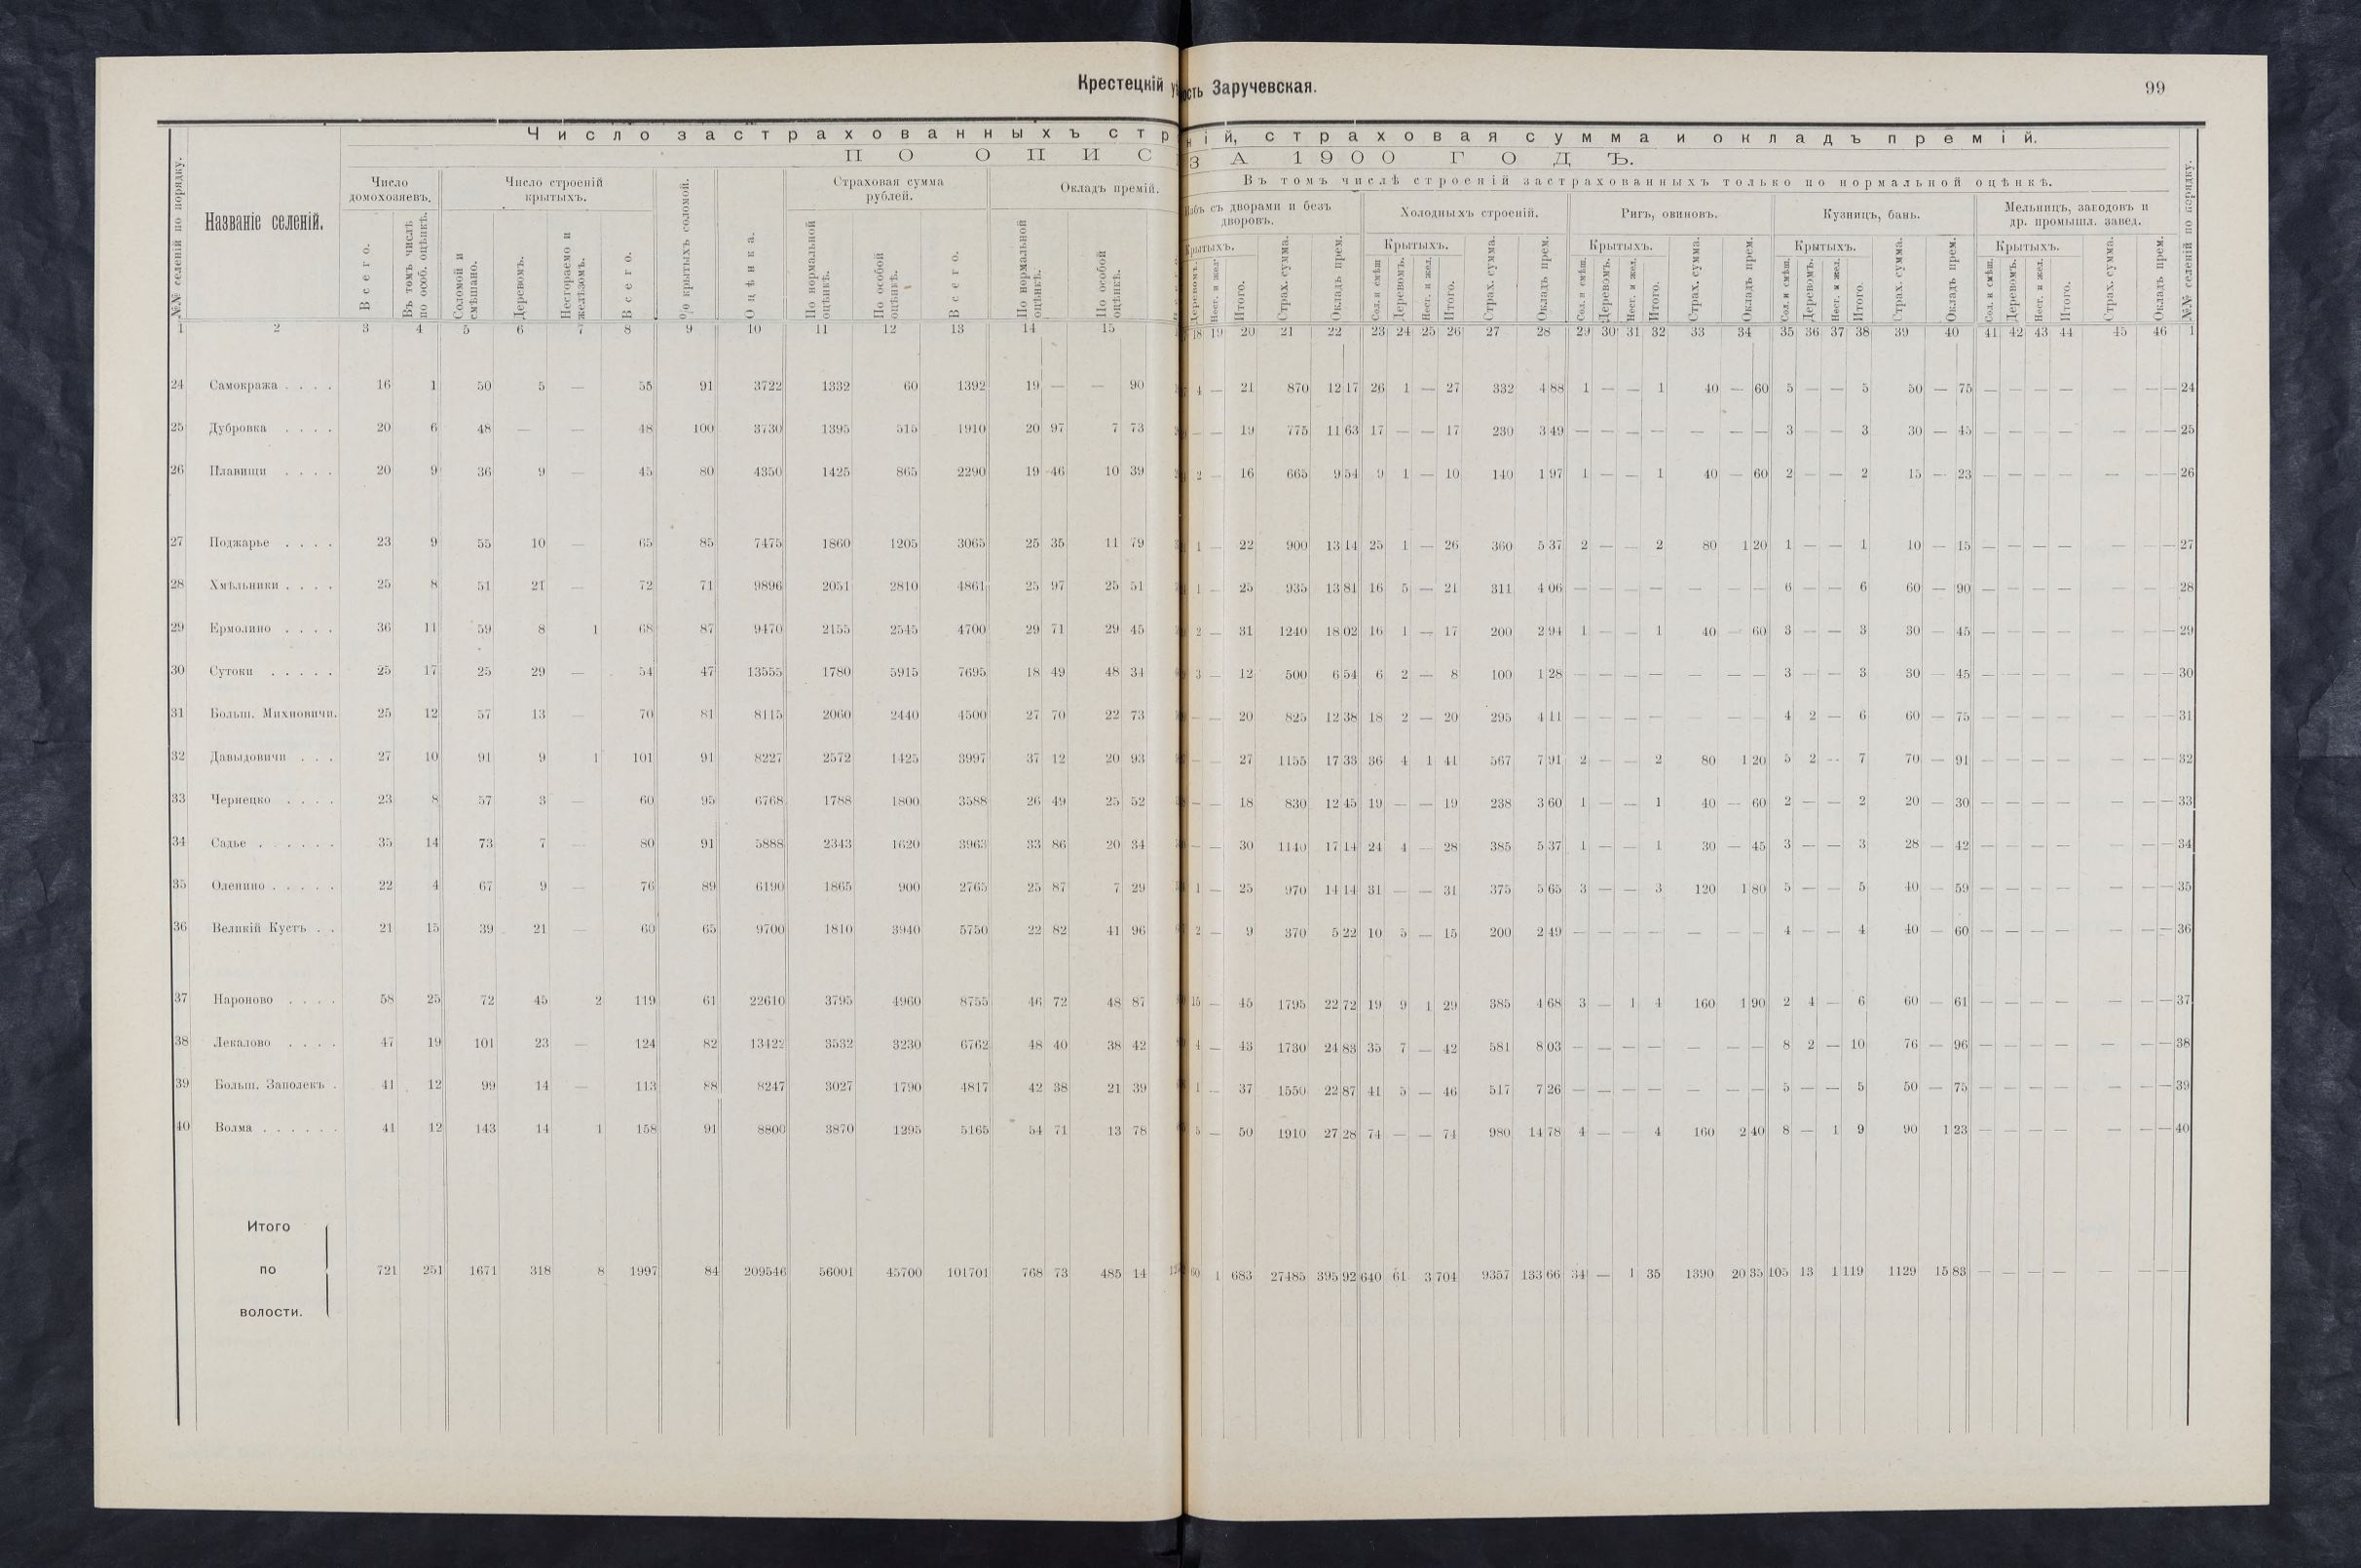 Крестецкій
Заручевская.
99
Число застрахованныхъ
страховая сумма и окладъ премій.
ПО ОПИС
ЗА 1900 ГОДЪ.
№№ селеній по порядку.
Названіе селеній.
Число домохозяевъ.
Всего.
Въ томъ числѣ по особ. оцѣнкѣ.
Число строеній крытыхъ.
Соломой и смѣшано.
Деревомъ.
Несгораемо и желѣзомъ.
Всего.
% крытыхъ соломой.
Оцѣнка.
Страховая сумма рублей.
По нормальной оцѣнкѣ.
По особой оцѣнкѣ.
Всего.
Окладъ премій.
По нормальной оцѣнкѣ.
По особой оцѣнкѣ.
Въ томъ числѣ строеній застрахованныхъ только по нормальной оцѣнкѣ.
съ дворами и безъ дворовъ.
Крытыхъ.
Деревомъ.
Несг. и жел.
Итого.
Страх. сумма.
Окладъ прем.
Холодныхъ строеній.
Крытыхъ.
Сол. и смѣш.
Деревомъ.
Несг. и жел.
Итого.
Страх. сумма.
Окладъ прем.
Ригъ, овиновъ.
Крытыхъ.
Сол. и смѣш.
Деревомъ.
Несг. и жел.
Итого.
Страх. сумма.
Окладъ прем.
Кузницъ, бань.
Крытыхъ.
Сол. и смѣш.
Деревомъ.
Несг. и жел.
Итого.
Страх. сумма.
Окладъ прем.
Мельницъ, заводовъ и др. промышл. завед.
Крытыхъ.
Сол. и смѣш.
Деревомъ.
Несг. и жел.
Итого.
Страх. сумма.
Окладъ прем.
№№ селеній по порядку.
1 2 3 4 5 6 7 8 9 10 11 12 13 14 15 18 19 20 21 22 23 24 25 26 27 28 29 30 31 32 33 34 35 36 37 38 39 40 41 42 43 44 45 46 1
24 Самокража . . . . 16 1 50 5 — 55 91 3722 1332 60 1392 19 — — 90 4 — 21 870 12 17 26 1 — 27 332 4 88 1 — — 1 40 — 60 5 — — 5 50 — 75 — — — — — — — 24
25 Дубровка . . . . 20 6 48 — — 48 100 3730 1395 515 1910 20 97 7 73 — — 19 775 11 63 17 — — 17 230 3 49 — — — — — — — 3 — — 3 30 — 45 — — — — — — — 25
26 Плавищи . . . . 20 9 36 9 — 45 80 4350 1425 865 2290 19 46 10 39 2 — 16 665 9 54 9 1 — 10 140 1 97 1 — — 1 40 — 60 2 — — 2 15 — 23 — — — — — — — 26
27 Поджарье . . . . 23 9 55 10 — 65 85 7475 1860 1205 3065 25 35 11 79 1 — 22 900 13 14 25 1 — 26 360 5 37 2 — — 2 80 1 20 1 — — 1 10 — 15 — — — — — — — 27
28 Хмѣльники . . . . 25 8 51 21 — 72 71 9896 2051 2810 4861 25 97 25 51 1 — 25 935 13 81 16 5 — 21 311 4 06 — — — — — — — 6 — — 6 60 — 90 — — — — — — — 28
29 Ермолино . . . . 36 11 59 8 1 68 87 9470 2155 2545 4700 29 71 29 45 2 — 31 1240 18 02 16 1 — 17 200 2 94 1 — — 1 40 — 60 3 — — 3 30 — 45 — — — — — — — 29
30 Сутоки . . . . . 25 17 25 29 — 54 47 13555 1780 5915 7695 18 49 48 34 3 — 12 500 6 54 6 2 — 8 100 1 28 — — — — — — — 3 — — 3 30 — 45 — — — — — — — 30
31 Больш. Михновичи. 25 12 57 13 — 70 81 8115 2060 2440 4500 27 70 22 73 — — 20 825 12 38 18 2 — 20 295 4 11 — — — — — — — 4 2 — 6 60 — 75 — — — — — — — 31
32 Давыдовичи . . . 27 10 91 9 1 101 91 8227 2572 1425 3997 37 12 20 93 — — 27 1155 17 33 36 4 1 41 567 7 91 2 — — 2 80 1 20 5 2 — 7 70 — 91 — — — — — — — 32
33 Чернецко . . . . 23 8 57 3 — 60 95 6768 1788 1800 3588 26 49 25 52 — — 18 830 12 45 19 — — 19 238 3 60 1 — — 1 40 — 60 2 — — 2 20 — 30 — — — — — — — 33
34 Садье . . . . . . 35 14 73 7 — 80 91 5888 2343 1620 3963 33 86 20 34 — — 30 1140 17 14 24 4 — 28 385 5 37 1 — — 1 30 — 45 3 — — 3 28 — 42 — — — — — — — 34
35 Оленино . . . . . 22 4 67 9 — 76 89 6190 1865 900 2765 25 87 7 29 1 — 25 970 14 14 31 — — 31 375 5 65 3 — — 3 120 1 80 5 — — 5 40 — 59 — — — — — — — 35
36 Великій Кустъ . . 21 15 39 21 — 60 65 9700 1810 3940 5750 22 82 41 96 2 — 9 370 5 22 10 5 — 15 200 2 49 — — — — — — — 4 — — 4 40 — 60 — — — — — — — 36
37 Нароново . . . . 58 25 72 45 2 119 61 22610 3795 4960 8755 46 72 48 87 15 — 45 1795 22 72 19 9 1 29 385 4 68 3 — 1 4 160 1 90 2 4 — 6 60 — 61 — — — — — — — 37
38 Лекалово . . . . 47 19 101 23 — 124 82 13422 3532 3230 6762 48 40 38 42 4 — 43 1730 24 83 35 7 — 42 581 8 03 — — — — — — — 8 2 — 10 76 — 96 — — — — — — — 38
39 Больш. Заполекъ . 41 12 99 14 — 113 88 8247 3027 1790 4817 42 38 21 39 1 — 37 1550 22 87 41 5 — 46 517 7 26 — — — — — — — 5 — — 5 50 — 75 — — — — — — — 39
40 Волма . . . . . . 41 12 143 14 1 158 91 8800 3870 1295 5165 54 71 13 78 5 — 50 1910 27 28 74 — — 74 980 14 78 4 — — 4 160 2 40 8 — 1 9 90 1 23 — — — — — — — 40
Итого
по 721 251 1671 318 8 1997 84 209546 56001 45700 101701 768 73 485 14 60 1 683 27485 395 92 640 61 3 704 9357 133 66 34 — 1 35 1390 20 35 105 13 1 119 1129 15 83 — — — — — — —
волости.